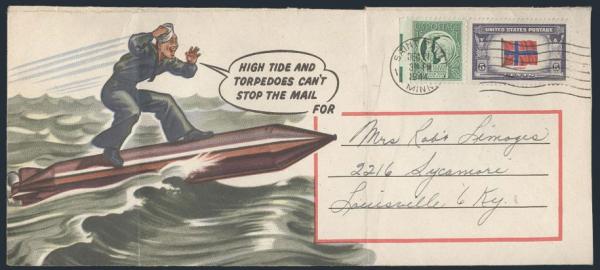 HIGH TIDE AND
TORPEDOES CAN'T
STOP THE MAIL
FOR
UNITED STATES POSTAGE
5 CENTS 5
1944
MINN
Mrs Rob't Limoges
2216 Sycamore
Louisville 6 Ky.